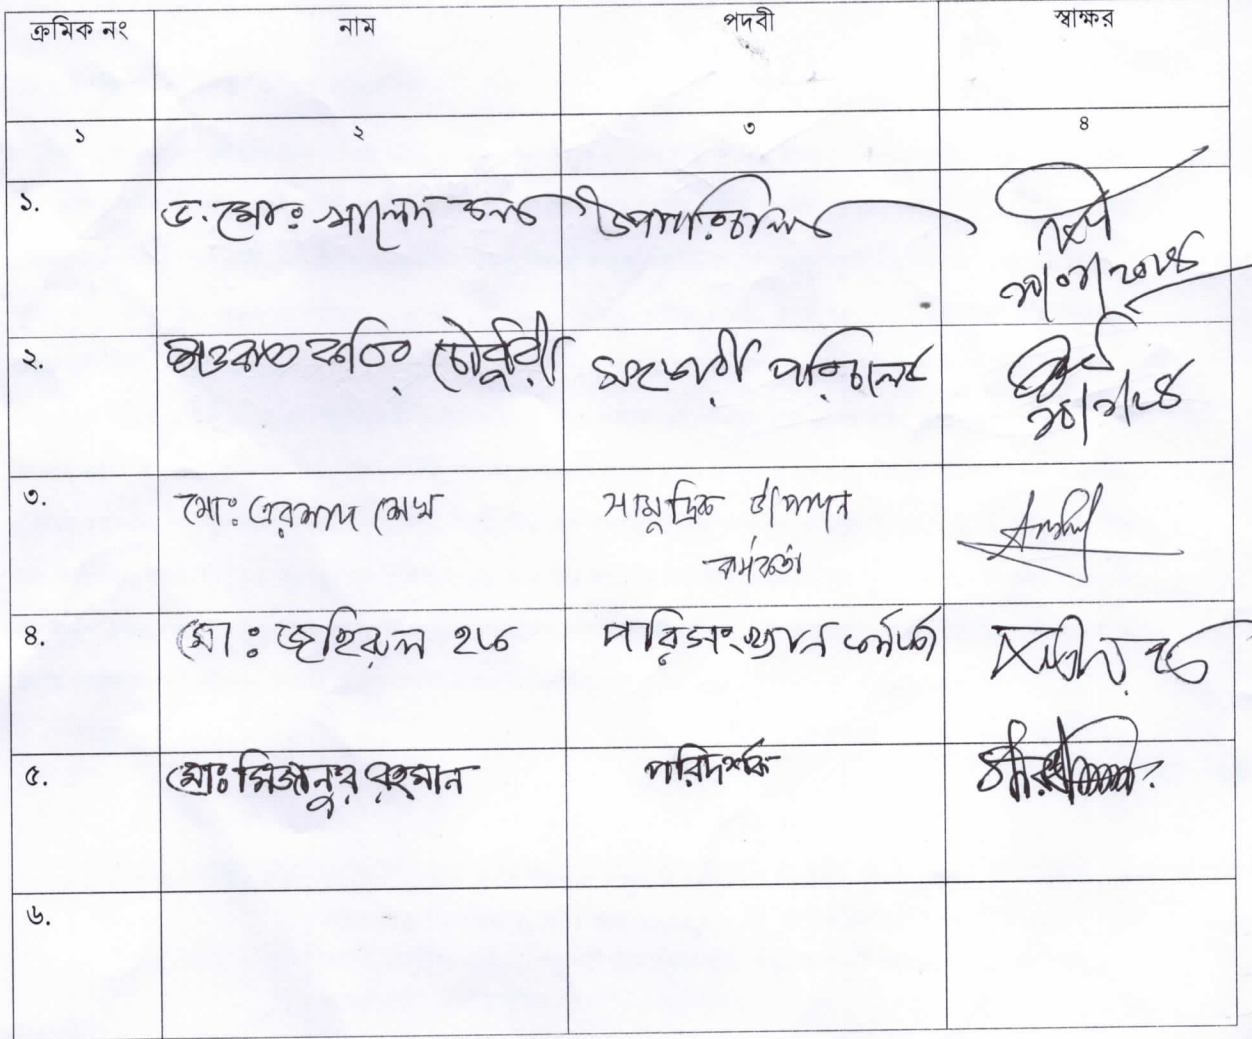 ক্রমিক নং নাম পদবী স্বাক্ষর
১ ২ ৩ ৪
১. ড. মোঃ খালেদ কনক উপপরিচালক
২. শওকত কবির চৌধুরী সহকারী পরিচালক
৩ মোঃ এরশাদ শেখ সামুদ্রিক
কর্মকর্তা
৪. মোঃ জহিরুল হক পরিসংখ্যান কর্মকর্তা
৫. মোঃ মিজানুর রহমান পরিদর্শক
৬.